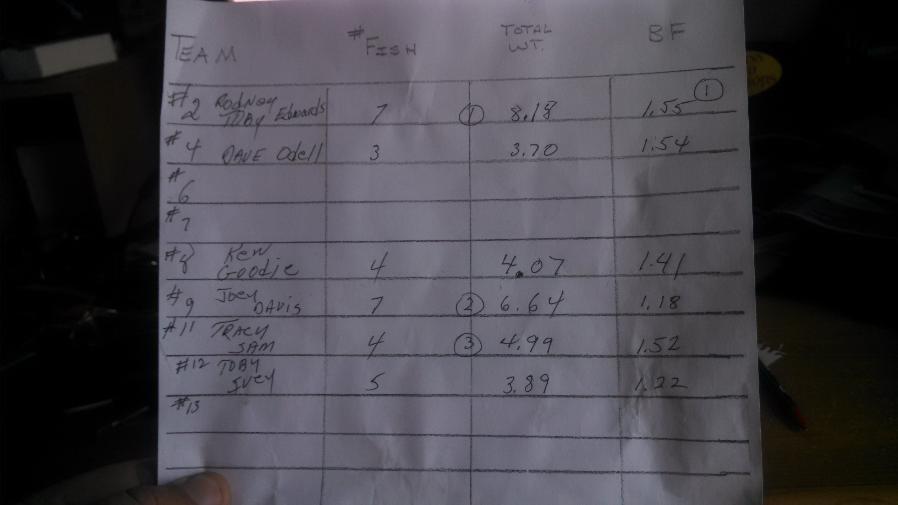 TEAM # FISH TOTAL WT. BF
#2 RODNEY TOBY Edwards 7 ① 8.18 1.55 ①
#4 DAVE Odell 3 3.70 1.54
#6
#7
#8 KEN Goodie 4 4.07 1.41
#9 JOEY DAVIS 7 ② 6.64 1.18
#11 TRACY SAM 4 ③ 4.99 1.52
#12 TOBY IVEY 5 3.89 1.22
#13